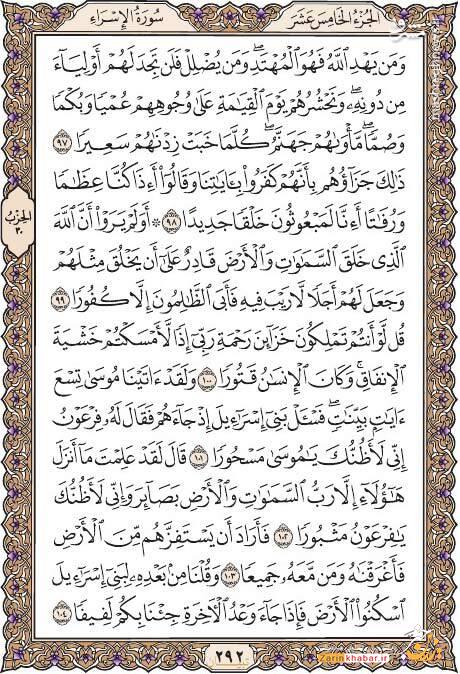 الجُزءُ الخَامِس عَشَر
سُورَةُ الإِسرَاء
وَمَن يَهْدِ ٱللَّهُ فَهُوَ ٱلْمُهْتَدِ ۖ وَمَن يُضْلِلْ فَلَن تَجِدَ لَهُمْ أَوْلِيَآءَ
مِن دُونِهِۦ ۖ وَنَحْشُرُهُمْ يَوْمَ ٱلْقِيَٰمَةِ عَلَىٰ وُجُوهِهِمْ عُمْيًا وَبُكْمًا
وَصُمًّا ۖ مَّأْوَىٰهُمْ جَهَنَّمُ ۖ كُلَّمَا خَبَتْ زِدْنَٰهُمْ سَعِيرًا ٩٧
ذَٰلِكَ جَزَآؤُهُم بِأَنَّهُمْ كَفَرُوا۟ بِـَٔايَٰتِنَا وَقَالُوٓا۟ أَءِذَا كُنَّا عِظَٰمًا
وَرُفَٰتًا أَءِنَّا لَمَبْعُوثُونَ خَلْقًا جَدِيدًا ٩٨ ۞ أَوَلَمْ يَرَوْا۟ أَنَّ ٱللَّهَ
ٱلَّذِى خَلَقَ ٱلسَّمَٰوَٰتِ وَٱلْأَرْضَ قَادِرٌ عَلَىٰٓ أَن يَخْلُقَ مِثْلَهُمْ
وَجَعَلَ لَهُمْ أَجَلًا لَّا رَيْبَ فِيهِ فَأَبَى ٱلظَّٰلِمُونَ إِلَّا كُفُورًا ٩٩
قُل لَّوْ أَنتُمْ تَمْلِكُونَ خَزَآئِنَ رَحْمَةِ رَبِّىٓ إِذًا لَّأَمْسَكْتُمْ خَشْيَةَ
ٱلْإِنفَاقِ ۚ وَكَانَ ٱلْإِنسَٰنُ قَتُورًا ١٠٠ وَلَقَدْ ءَاتَيْنَا مُوسَىٰ تِسْعَ
ءَايَٰتٍۭ بَيِّنَٰتٍ ۖ فَسْـَٔلْ بَنِىٓ إِسْرَٰٓءِيلَ إِذْ جَآءَهُمْ فَقَالَ لَهُۥ فِرْعَوْنُ
إِنِّى لَأَظُنُّكَ يَٰمُوسَىٰ مَسْحُورًا ١٠١ قَالَ لَقَدْ عَلِمْتَ مَآ أَنزَلَ
هَٰٓؤُلَآءِ إِلَّا رَبُّ ٱلسَّمَٰوَٰتِ وَٱلْأَرْضِ بَصَآئِرَ وَإِنِّى لَأَظُنُّكَ
يَٰفِرْعَوْنُ مَثْبُورًا ١٠٢ فَأَرَادَ أَن يَسْتَفِزَّهُم مِّنَ ٱلْأَرْضِ
فَأَغْرَقْنَٰهُ وَمَن مَّعَهُۥ جَمِيعًا ١٠٣ وَقُلْنَا مِنۢ بَعْدِهِۦ لِبَنِىٓ إِسْرَٰٓءِيلَ
ٱسْكُنُوا۟ ٱلْأَرْضَ فَإِذَا جَآءَ وَعْدُ ٱلْءَاخِرَةِ جِئْنَا بِكُمْ لَفِيفًا ١٠٤
الحِزْبُ
٣٠
٢٩٢
Zarinkhabar.ir